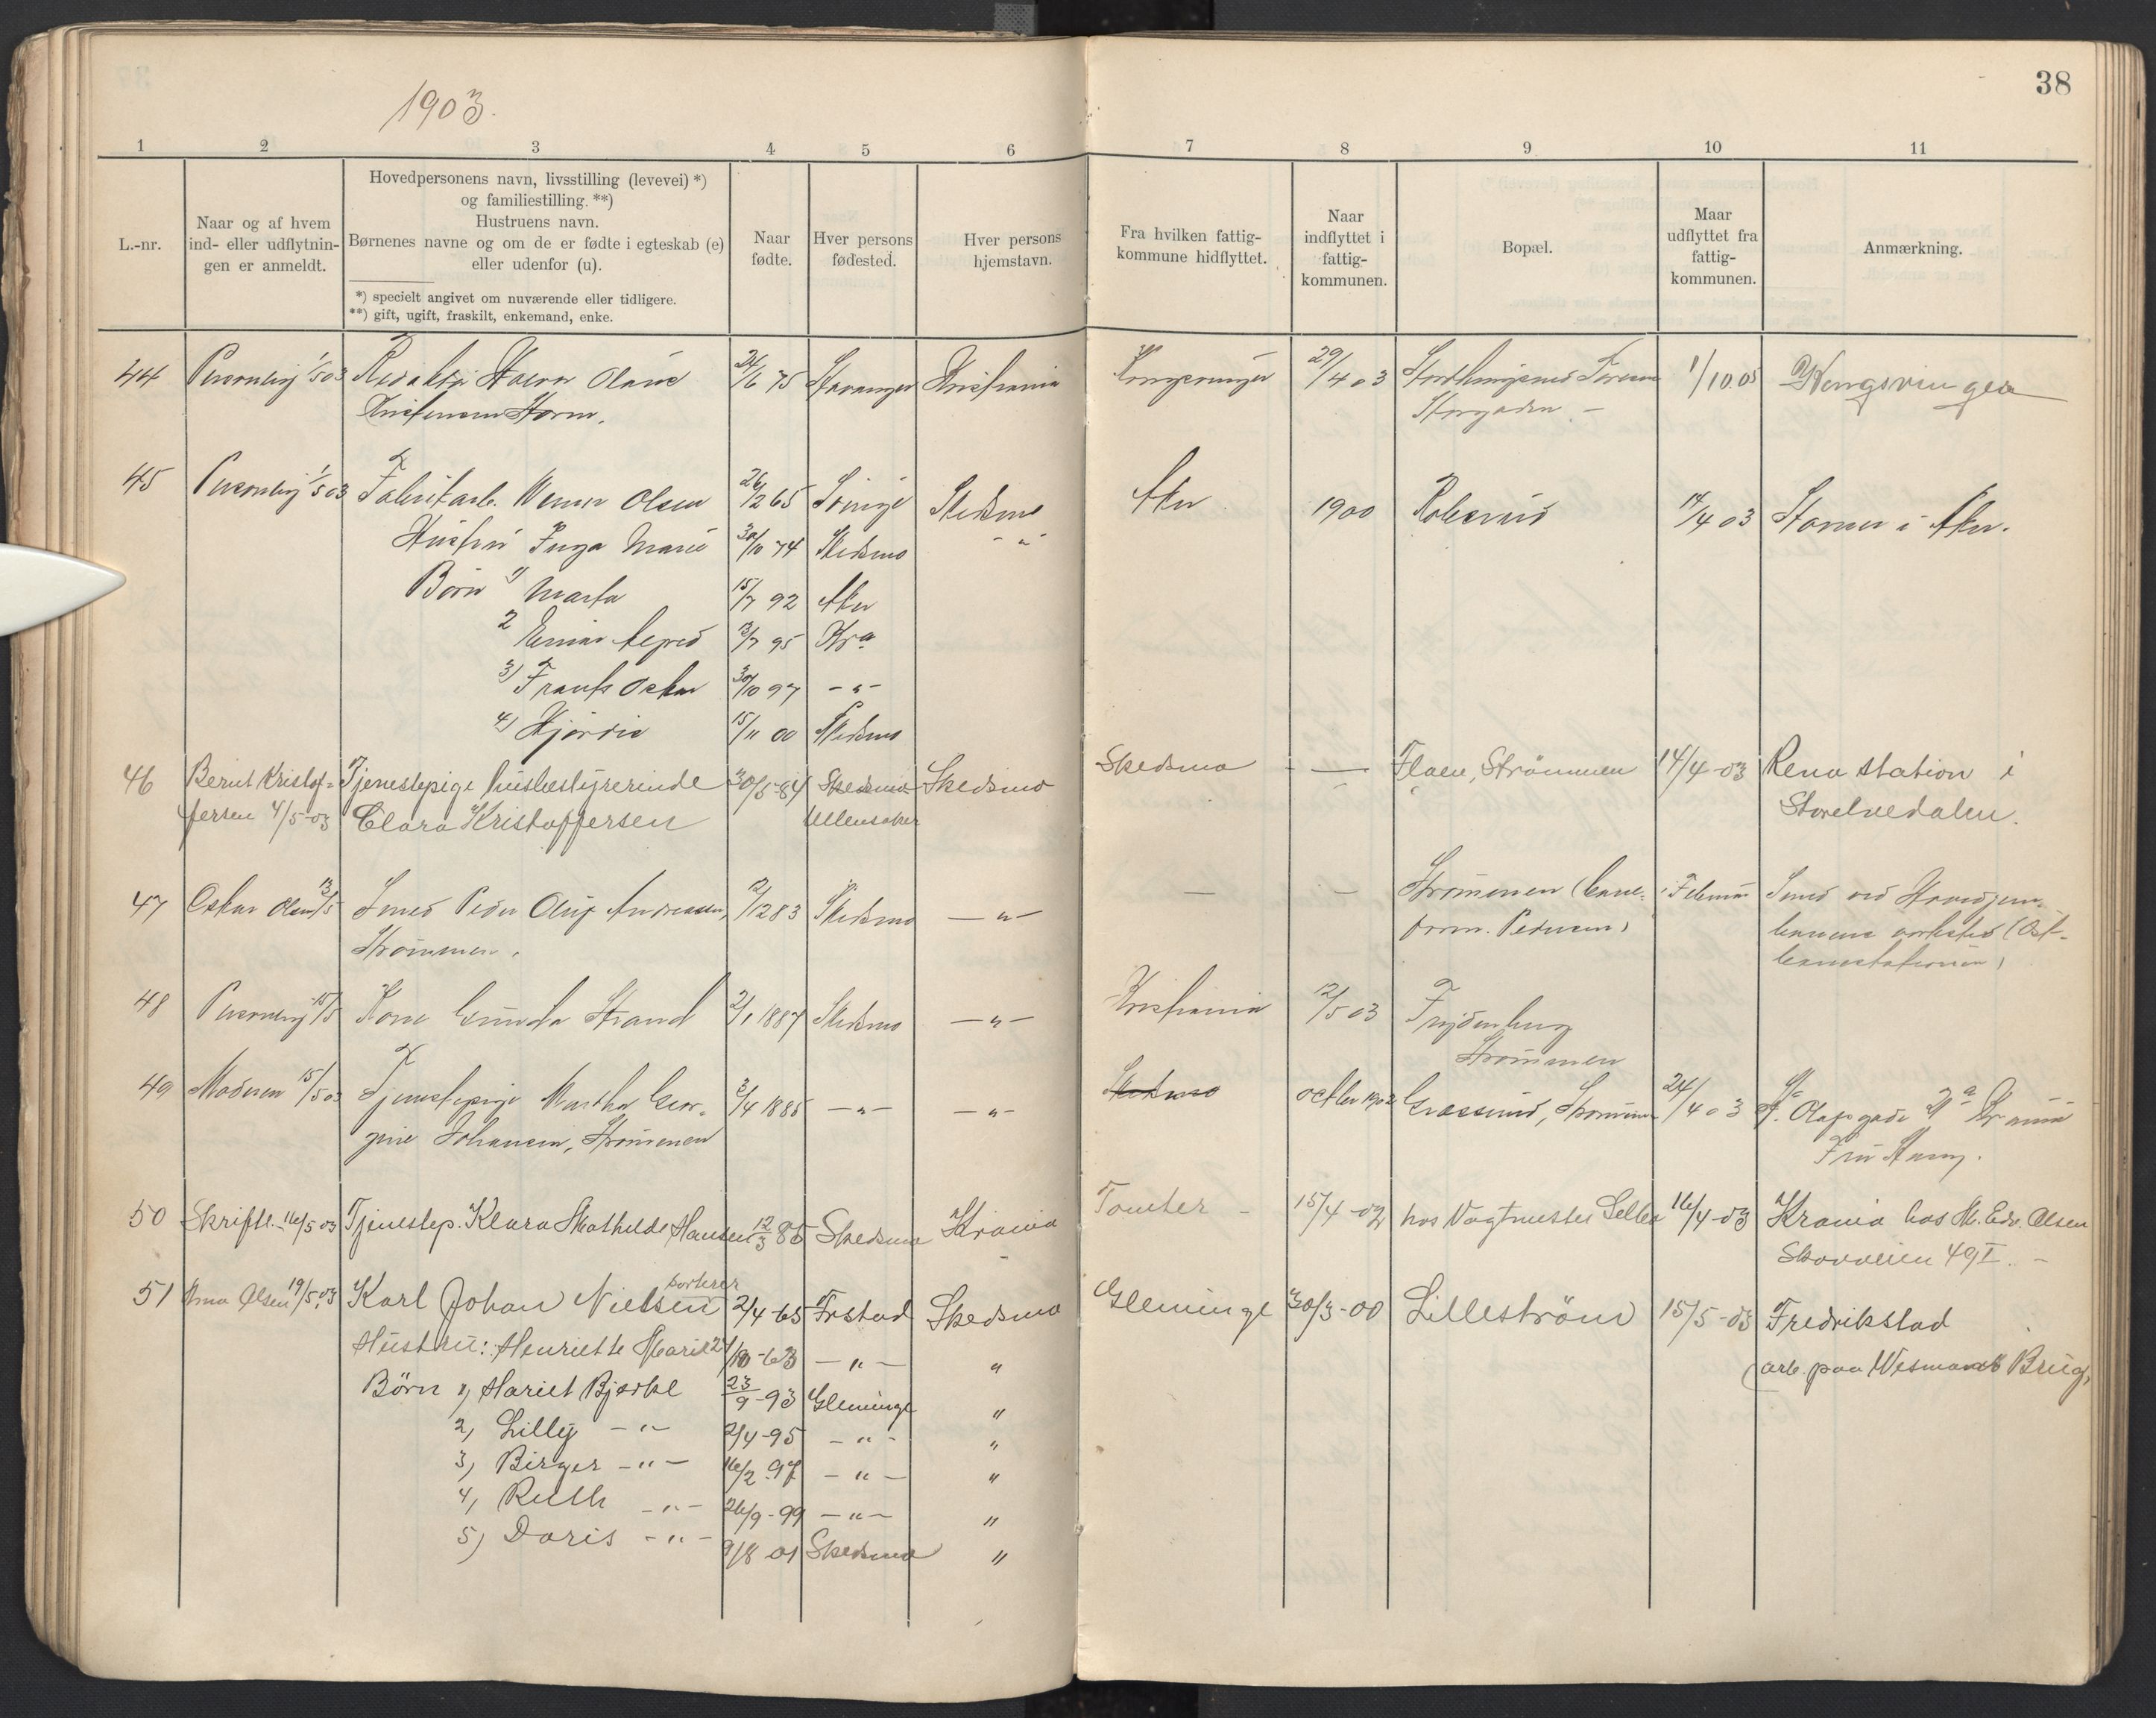 38
1903.
1 2 3 4 5 6 7 8 9 10 11
L.-nr.
Naar og af hvem
ind- eller udflytnin-
gen er anmeldt.
Hovedpersonens navn, livsstilling (levevei) *)
og familiestilling. **)
Hustruens navn.
Børnenes navne og om de er fødte i egteskab (e)
eller udenfor (u).
*) specielt angivet om nuværende eller tidligere.
**) gift, ugift, fraskilt, enkemand, enke.
Naar
fødte.
Hver persons
fødested.
Hver persons
hjemstavn.
Fra hvilken fattig-
kommune hidflyttet.
Naar
indflyttet i
fattig-
kommunen.
Bopæl.
Maar
udflyttet fra
fattig-
kommunen.
Anmærkning.
44 Personlig 1/5 03 Redaktør 24/6 75 Stavanger Kristiania Kongsvinger 29/4 03 1/10.05 Kongsvinger
Kristensen Storm. Storgaden –
45 Personlig 1/5 03 Fabrikarb. Werner Olsen 26/2 65 Skedsmo Aker 1900 Robsrud 14/4 03 i Aker.
Hustru Inga Marie 30/10 74 Skedsmo - " -
Børn 1) Marta 15/7 92 Aker
2 Einar 13/7 95 Kra
3) Frants Oskar 30/10 97 - " -
4) Hjørdis 15/11 00 Skedsmo
46 Bernt Kristof= Tjenestepige husbestyrerinde 30/5-84 Skedsmo Skedsmo Skedsmo — Flaen, Strømmen 14/4-03 Rena station i
fersen 4/5-03 Clara Kristoffersen Ullensaker Storelvedalen.
47 Oskar Olsen 13/5 Smed Peder Oluf Andreassen, 2/12 83 Skedsmo — " — — — Strømmen (bane- i Februar Smed ved Hovedjern-
Strømmen. form. Pedersen) banens verksted (Øst-
banestationen)
48 Personlig 15/5 Kone Gunda Strand 2/1 1887 Skedsmo — " — Kristiania 12/5 03 Frydenberg
Strømmen
49 Moderen 15/5 03 Tjenestepige Martha Geor- 3/4 1885 — " — — " — Skedsmo octber 1902 Strømmen 24/4 03 St. Olafsgade Krania
gine Johansen, Strømmen Fru
50 Skriftl. 16/5 03 Tjenestep. Klara Mathilde Hansen 12/3 85 Skedsmo Krania Tomter – 15/4-02 hos Vagtmester 16/4-03 Krania hos M. Edv. Olsen
Skovveien 49 I. –
51 Olsen 19/5.03 Karl Johan Nielsen sorterer 2/4-65 Frstad Skedsmo Glemminge 30/3-00 Lillestrøm 15/5-03 Fredrikstad
Hustru: Henriette Marie 21/10-63 — " — " (arb. paa Wismans Brug,
Børn 1, Hariet Bjerke 23/9-93 Glemminge "
2, Lilly — " — 2/4-95 — " — "
3, Birger — " — 16/2 97 — " — "
4, Ruth — " — 26/9-99 — " — "
5) Doris — " — 9/8 01 Skedsmo "